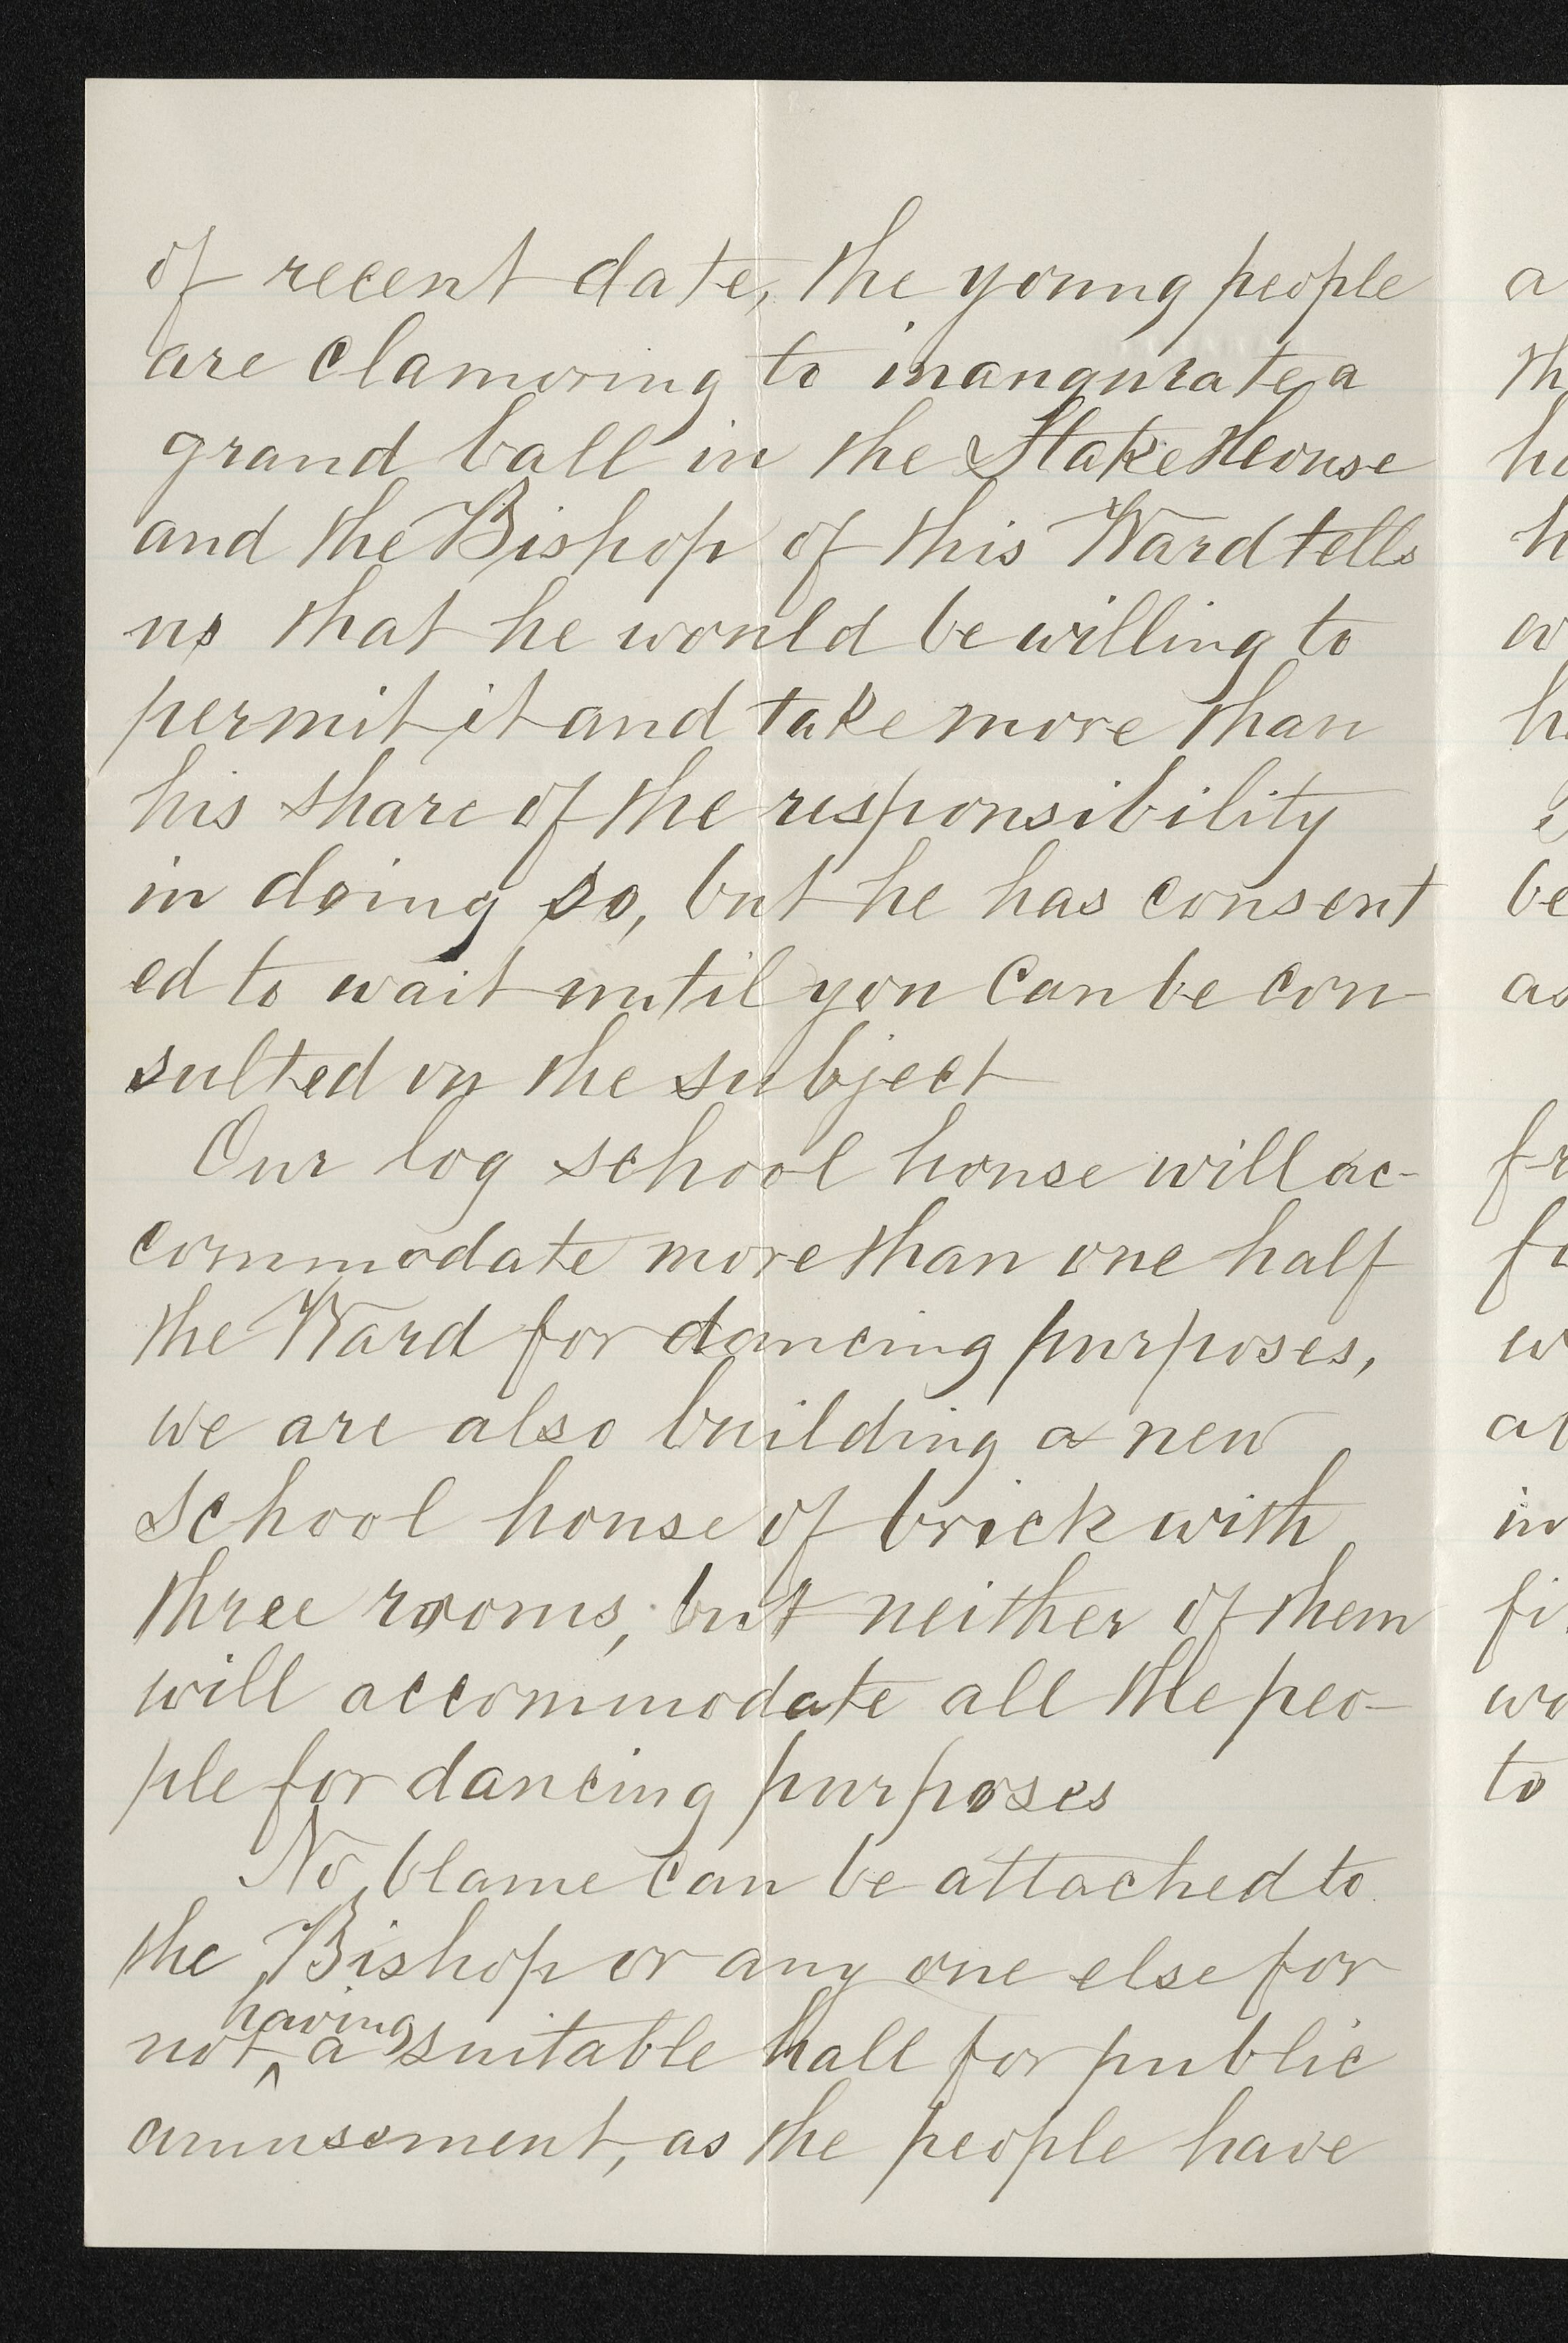 of recent date, the young people
are clamoring to inaugurate a
grand ball in the Stake House
and the Bishop of this Ward tells
us that he would be willing to
permit it and take more than
his share of the responsibility
in doing so, but he has consent
ed to wait until you can be con-
sulted on the subject
Our log school house will ac-
commodate more than one half
the Ward for dancing purposes,
we are also building a new
school house of brick with
three rooms, but neither of them
will accommodate all the peo-
ple for dancing purposes
No blame can be attached to
the Bishop or any one else for
not ^having a suitable hall for public
amusement, as the people have
a
th
ho
h
w
h
be
as
fr
fo
w
at
in
fi
wo
to